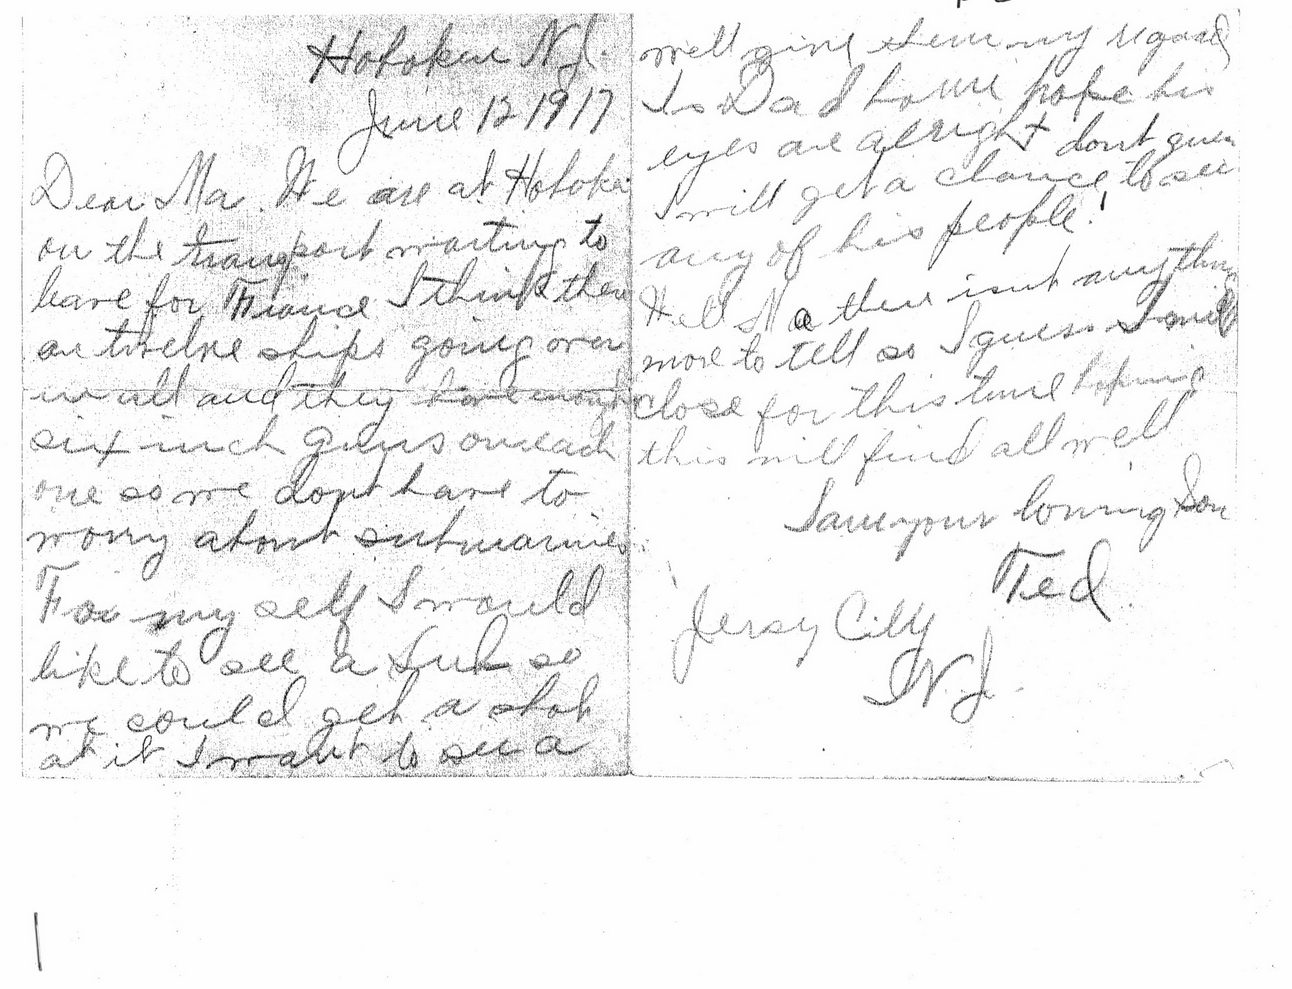 Hoboken N.J.
June 12 1917
Dear Ma. We are at Hoboken
on the transport waiting to
leave for France I think there
are twelve ships going over
in all and they have enough
six inch guns on each
one so we dont have to
worry about submarines.
For my self I would
like to see a sub so
we could get a shot
at it I want to see a
well give them my regards
Is Dad home hope his
eyes are alright dont guess
I will get a chance to see
any of his people.
Well Ma there isnt anything
more to tell so I guess I will
close for this time hoping
this will find all well
I am your loving Son
Ted.
Jersy City
N.J.